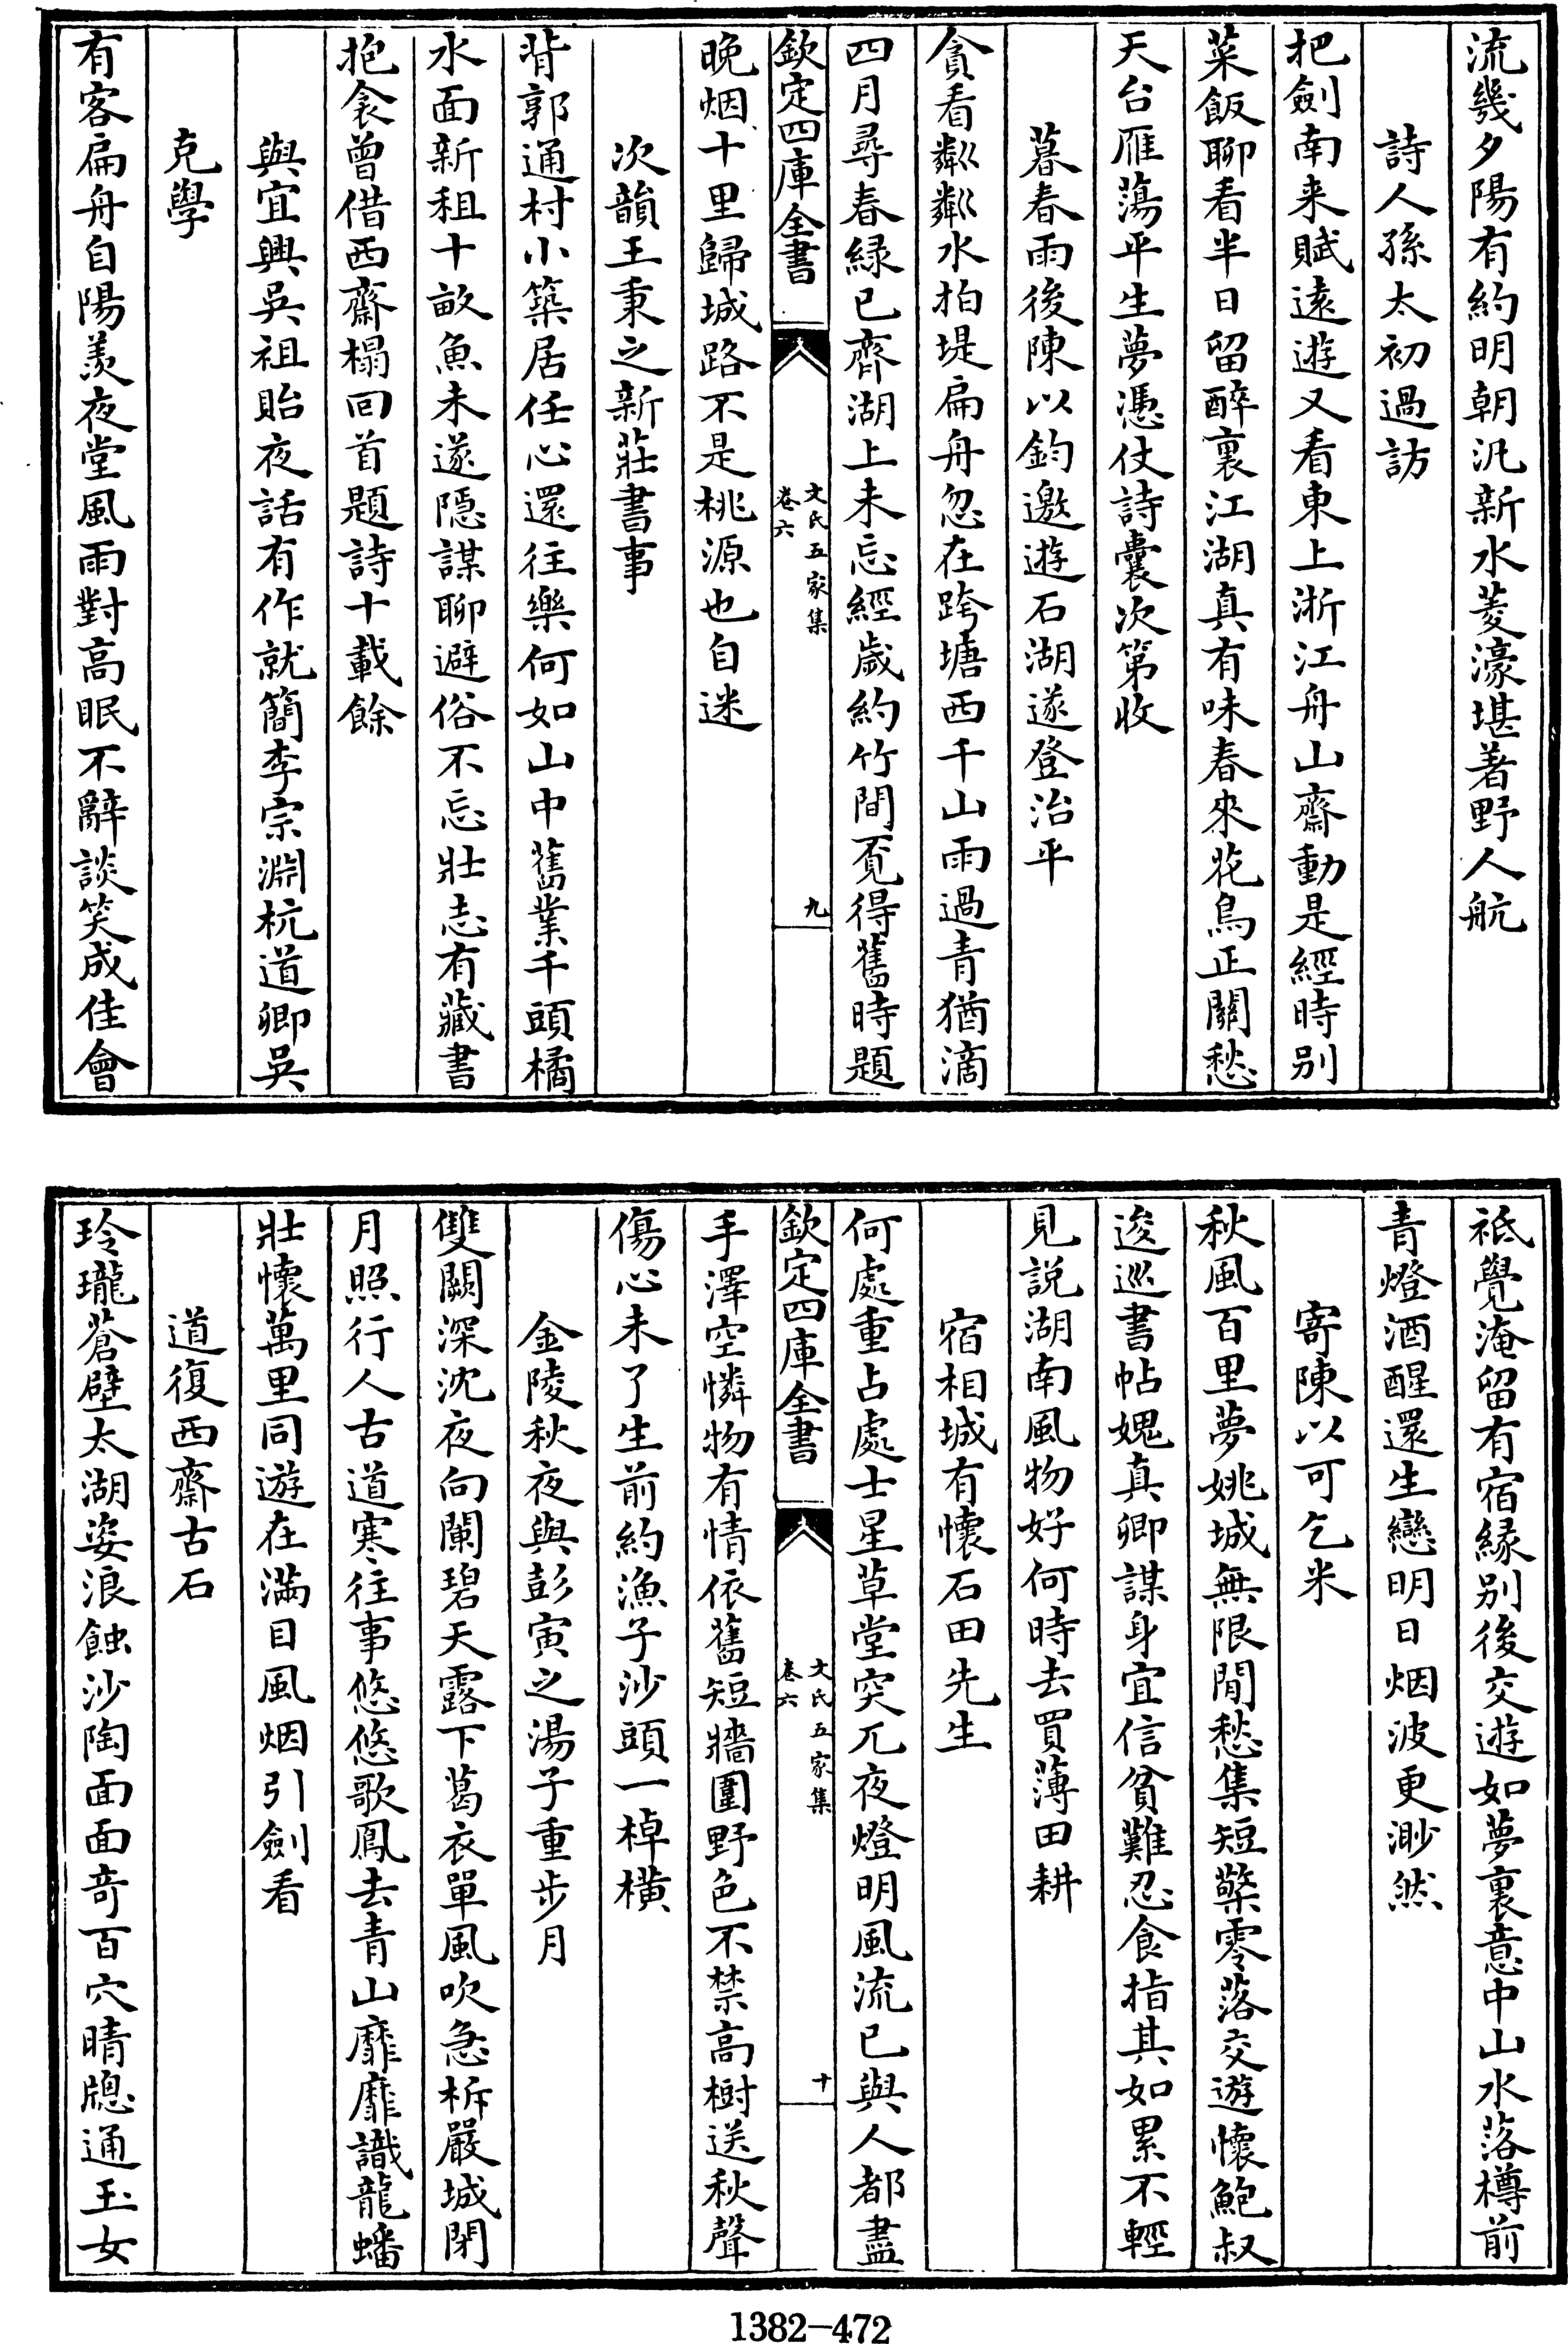 流幾夕陽有約明朝汎新水菱濠堪著野人航
詩人孫太初過訪
把劍南来賦遠遊又看東上浙江舟山齋動是經時别
菜飯聊看半日留醉裏江湖真有味春來花鳥正關愁
天台雁蕩平生夢憑仗詩囊次第收
暮春雨後陳以鈞邀遊石湖遂登治平
貪看粼粼水拍堤扁舟忽在跨塘西千山雨過青猶滴
四月尋春緑已齊湖上未忘經歲約竹間覔得舊時題
欽定四庫全書
文氏五家集
卷六
九
晚烟十里歸城路不是桃源也自迷
次韻王秉之新莊書事
背郭通村小築居任心還往樂何如山中舊業千頭橘
水面新租十畝魚未遂隠謀聊避俗不忘壯志有藏書
抱衾曾借西齋榻回首題詩十載餘
與宜興吳祖貽夜話有作就簡李宗淵杭道卿吳
克學
有客扁舟自陽羨夜堂風雨對高眠不辭談笑成佳會
祗覺淹留有宿緣别後交遊如夢裏意中山水落樽前
青燈酒醒還生戀明日烟波更渺然
寄陳以可乞米
秋風百里夢姚城無限閒愁集短檠零落交遊懷鮑叔
逡巡書帖媿真卿謀身宜信貧難忍食指其如累不輕
見説湖南風物好何時去買薄田耕
宿相城有懷石田先生
何處重占處士星草堂突兀夜燈明風流已與人都盡
欽定四庫全書
文氏五家集
卷六
十
手澤空憐物有情依舊短牆圍野色不禁高樹送秋聲
傷心未了生前約漁子沙頭一棹橫
金陵秋夜與彭寅之湯子重步月
雙闕深沈夜向闌碧天露下葛衣單風吹急柝嚴城閉
月照行人古道寒往事悠悠歌鳳去青山靡靡識龍蟠
壯懷萬里同遊在滿目風烟引劍看
道復西齋古石
玲瓏蒼壁太湖姿浪蝕沙陶面面竒百穴晴牕通玉女
1382-472